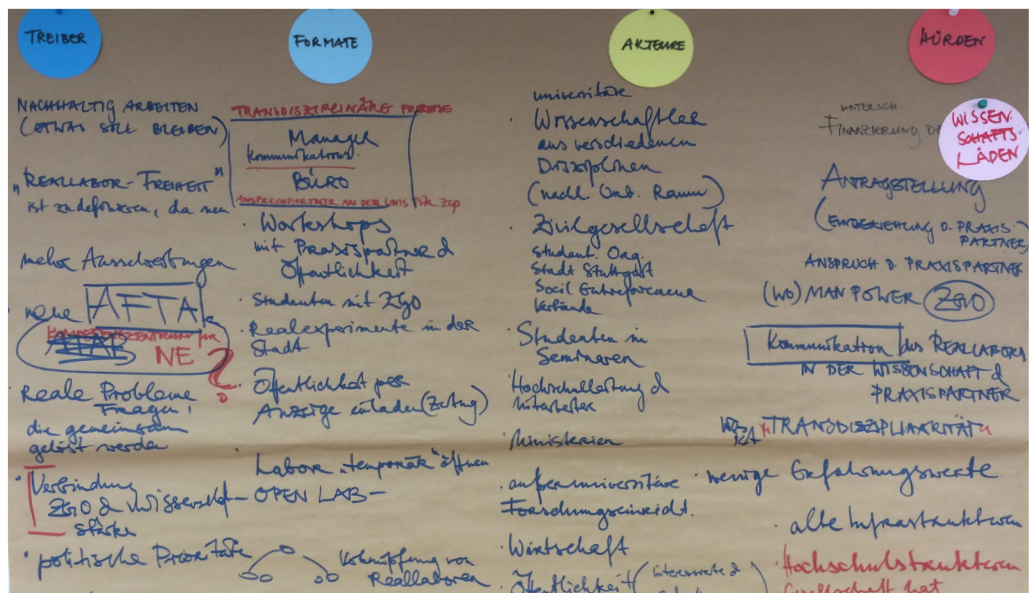 TREIBER
NACHHALTIG ARBEITEN
(ETWAS SOLL BLEIBEN)
"REALLABOR-FREIHEIT"
ist zu definieren, da neu
mehr Ausschreibungen
neue AFTA
für
NE ?
Reale Probleme
Fragen,
die gemeinsam
gelöst werden
· Verbindung
ZGO & Wissenschaft
stärke
· politische Priorität
FORMATE
TRANSDISZIPLINÄRE
Manager
Kommunikations.
BÜRO
ANSPRECHPARTNER AN DER UNIS FÜR ZGO
· Workshops
mit Praxispartner &
Öffentlichkeit
· Studenten mit ZGO
· Realexperimente in der
Stadt
· Öffentlichkeit per
Anzeige einladen (Zeitung)
Labor „temporär“ öffnen
- OPEN LAB -
Verknüpfung von
Reallaboren
AKTEURE
universitäre
· Wissenschaftler
aus verschiedenen
Disziplinen
· Zivilgesellschaft
student. Org.
Stadt Stuttgart
Verbände
· Studenten in
Seminaren
· Hochschulleitung &
Mitarbeiter
· Ministerien
· außeruniversitäre
Forschungseinricht.
· Wirtschaft
· Öffentlichkeit (interessierte &
HÜRDEN
WISSEN-
SCHAFTS-
LÄDEN
FINANZIERUNG
ANTRAGSTELLUNG
(EINBEZIEHUNG D. PRAXIS-
PARTNER)
ANSPRUCH D. PRAXISPARTNER
(WO)MANPOWER ZGO
Kommunikation des REALLABORS
IN DER WISSENSCHAFT &
PRAXISPARTNER
"TRANSDISZIPLINARITÄT"
· wenige Erfahrungswerte
· alte Infrastrukturen
· Hochschulstrukturen
Gesellschaft hat